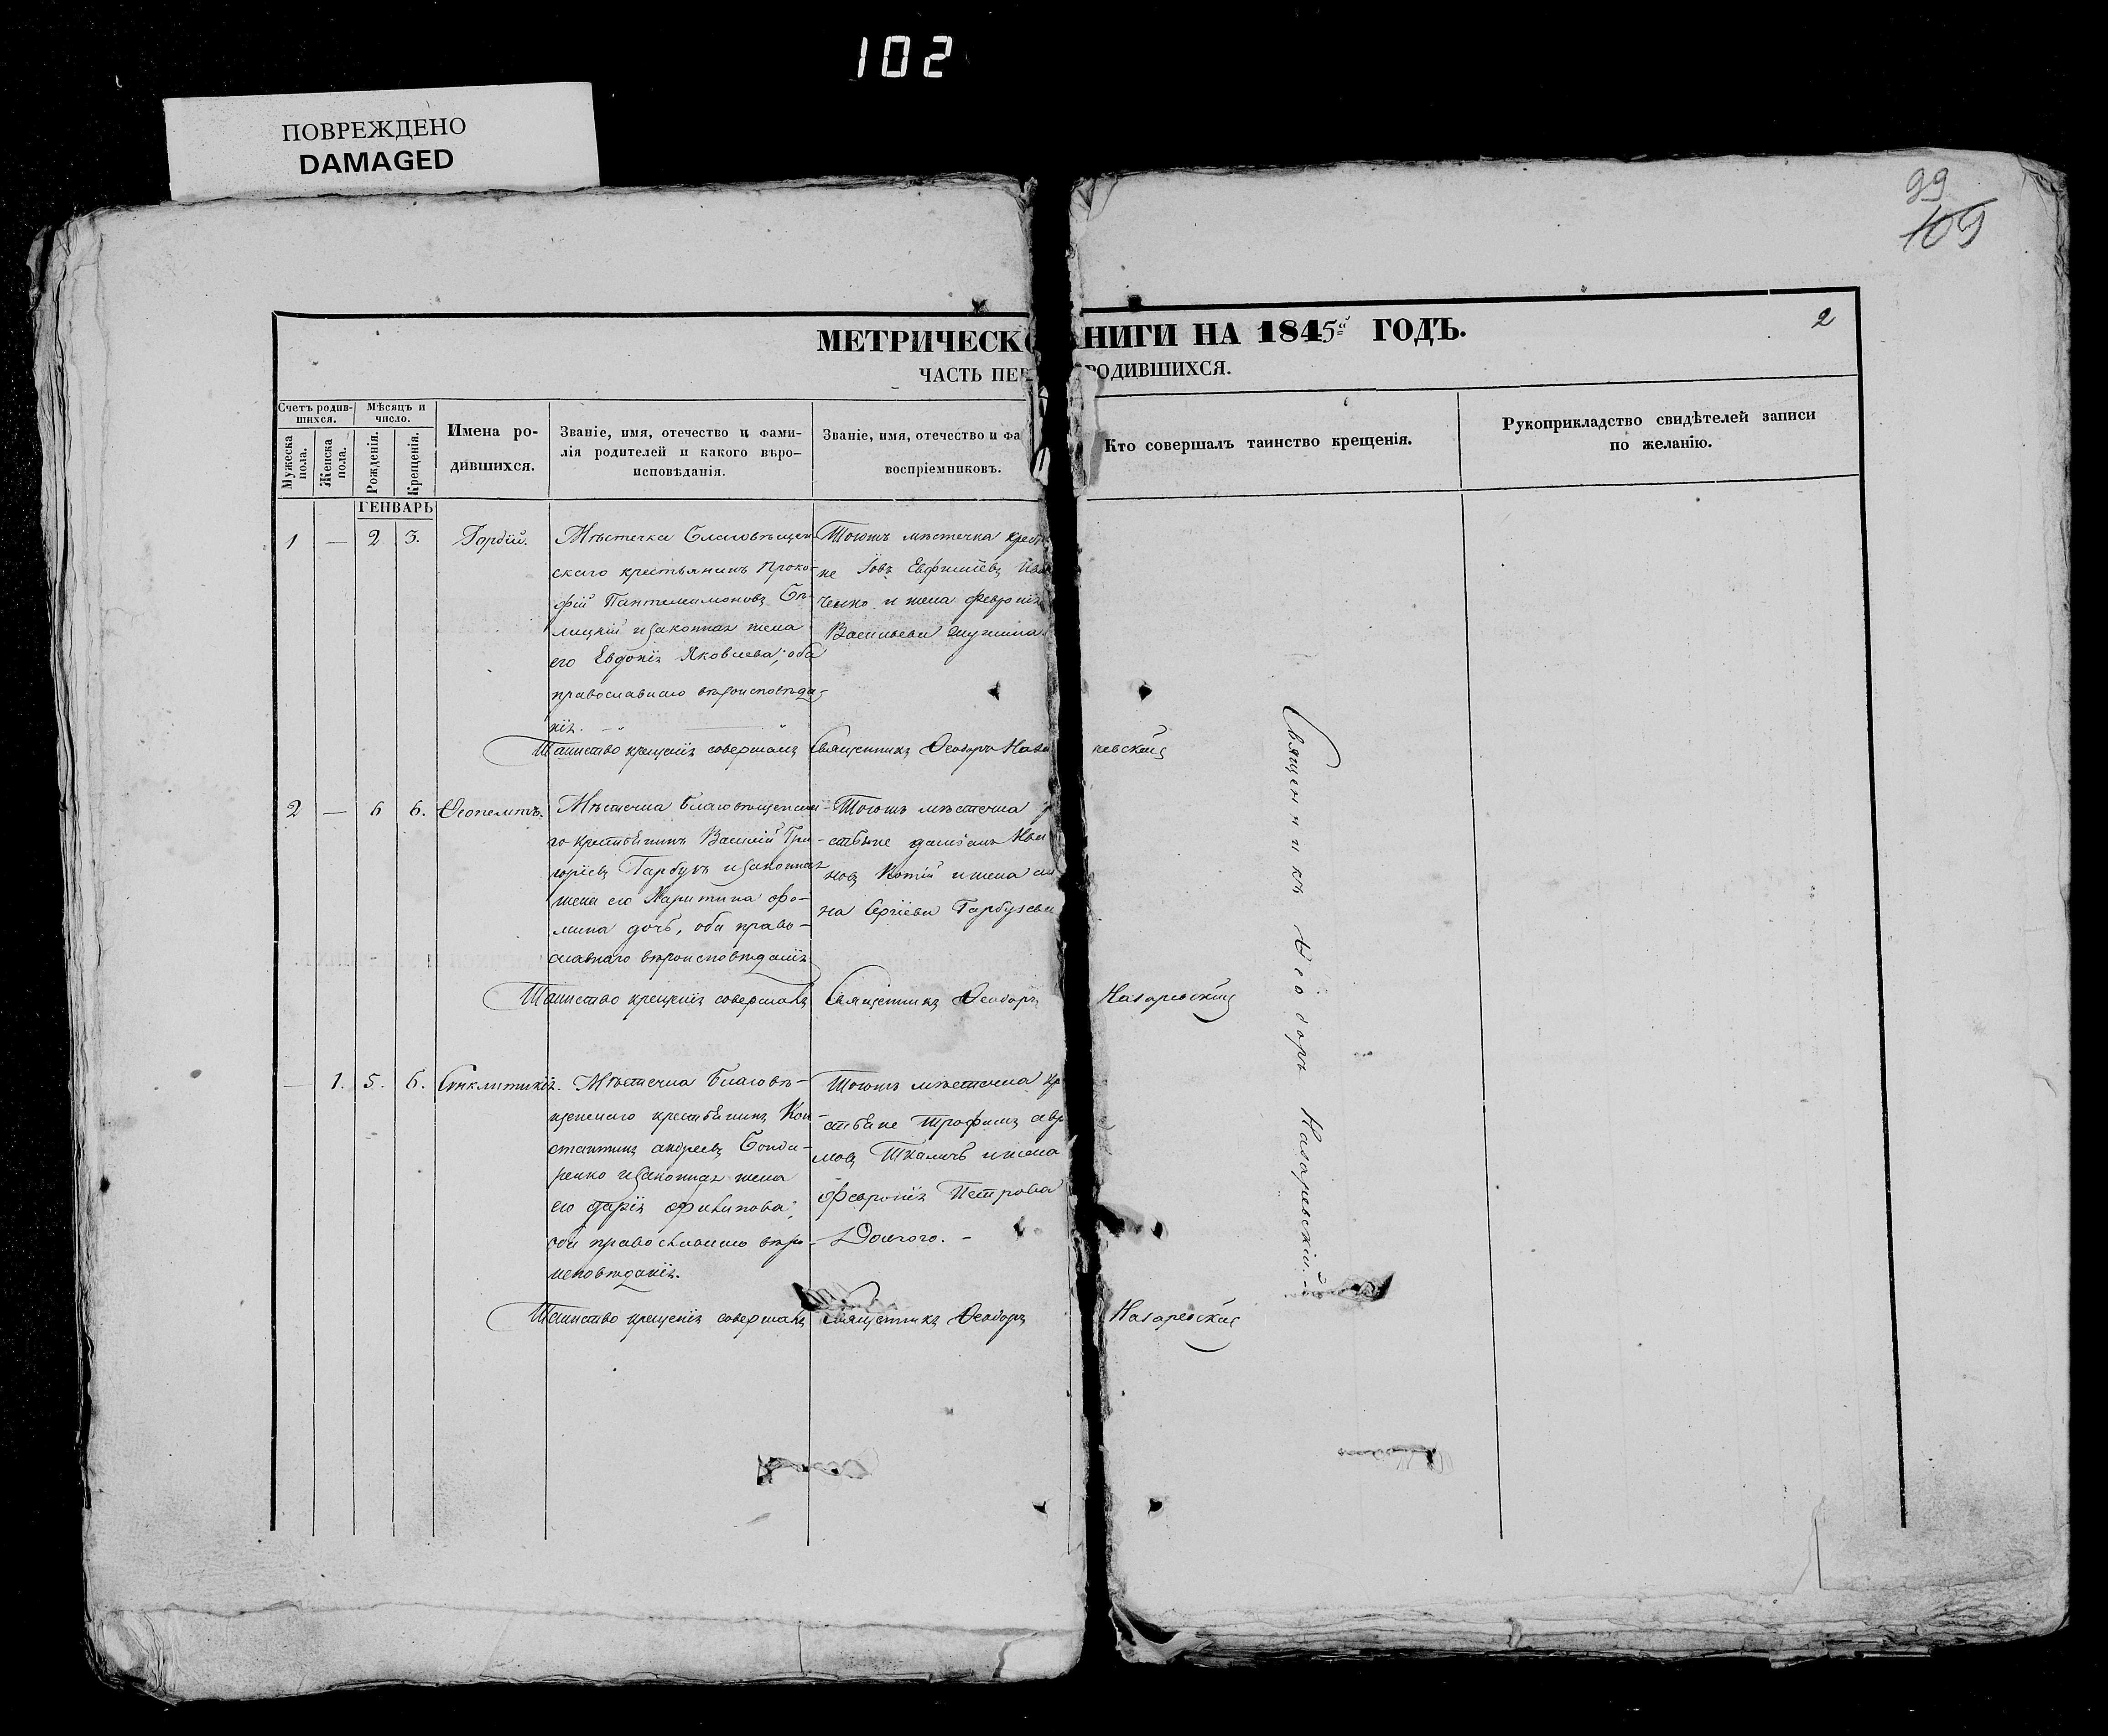 102
ПОВРЕЖДЕНО
DAMAGED
99
109
МЕТРИЧЕСКО НИГИ НА 1845й ГОДЪ. 2
ЧАСТЬ ПЕР РОДИВШИХСЯ.
Счетъ родив-
шихся.
Мѣсяцъ и
число.
Мужеска
пола.
Женска
пола.
Рожденія.
Крещенія.
Имена ро-
дившихся.
Званіе, имя, отечество и фами-
лія родителей и какого вѣро-
исповѣданія.
Званіе, имя, отечество и фа
воспріемниковъ.
Кто совершалъ таинство крещенія.
Рукоприкладство свидѣтелей записи
по желанію.
ГЕНВАРЬ
1 — 2 3. Гордій.
Мѣстечка Благовѣщен
скаго крестьянинъ Проко-
фій Пантелеимоновъ
лицкій и законная жена
его Евдокія Яковлева; оба
православнаго вѣроисповѣда-
нія.
Тогожъ мѣстечка крест
не Іовъ Евфиміевъ Ива
ченко и жена Февронія
Васильева
Таинство крещенія совершалъ Священникъ Ѳеодоръ Наза ревскій
2 — 6 6. Ѳеопемптъ.
Мѣстечка Благовѣщенска
го крестьянинъ Василій Гри
горіевъ Гарбузъ и законная
жена его Харитина Фо-
мина дочь, оба право-
славнаго вѣроисповѣданія
Тогожъ мѣстечка
стьяне Даніилъ Ива
новъ Котій и жена
на Сергіева Гарбузева
Таинство крещенія совершалъ Священникъ Ѳеодоръ Назаревскій
— 1. 5. 6. Сунклитикія.
Мѣстечка Благовѣ-
щенскаго крестьянинъ Кон
стантинъ Андреевъ Бонда-
ренко и законная жена
его Дарія Филипова;
оба православнаго вѣро-
исповѣданія.
Тогожъ мѣстечка кр
стьяне Трофимъ Авр
мовъ Ткаличъ и жена
Февронія Петрова
Долгого. -
Таинство крещенія совершалъ Священникъ Ѳеодоръ Назаревскій
Священникъ Ѳеодоръ Назаревскій.